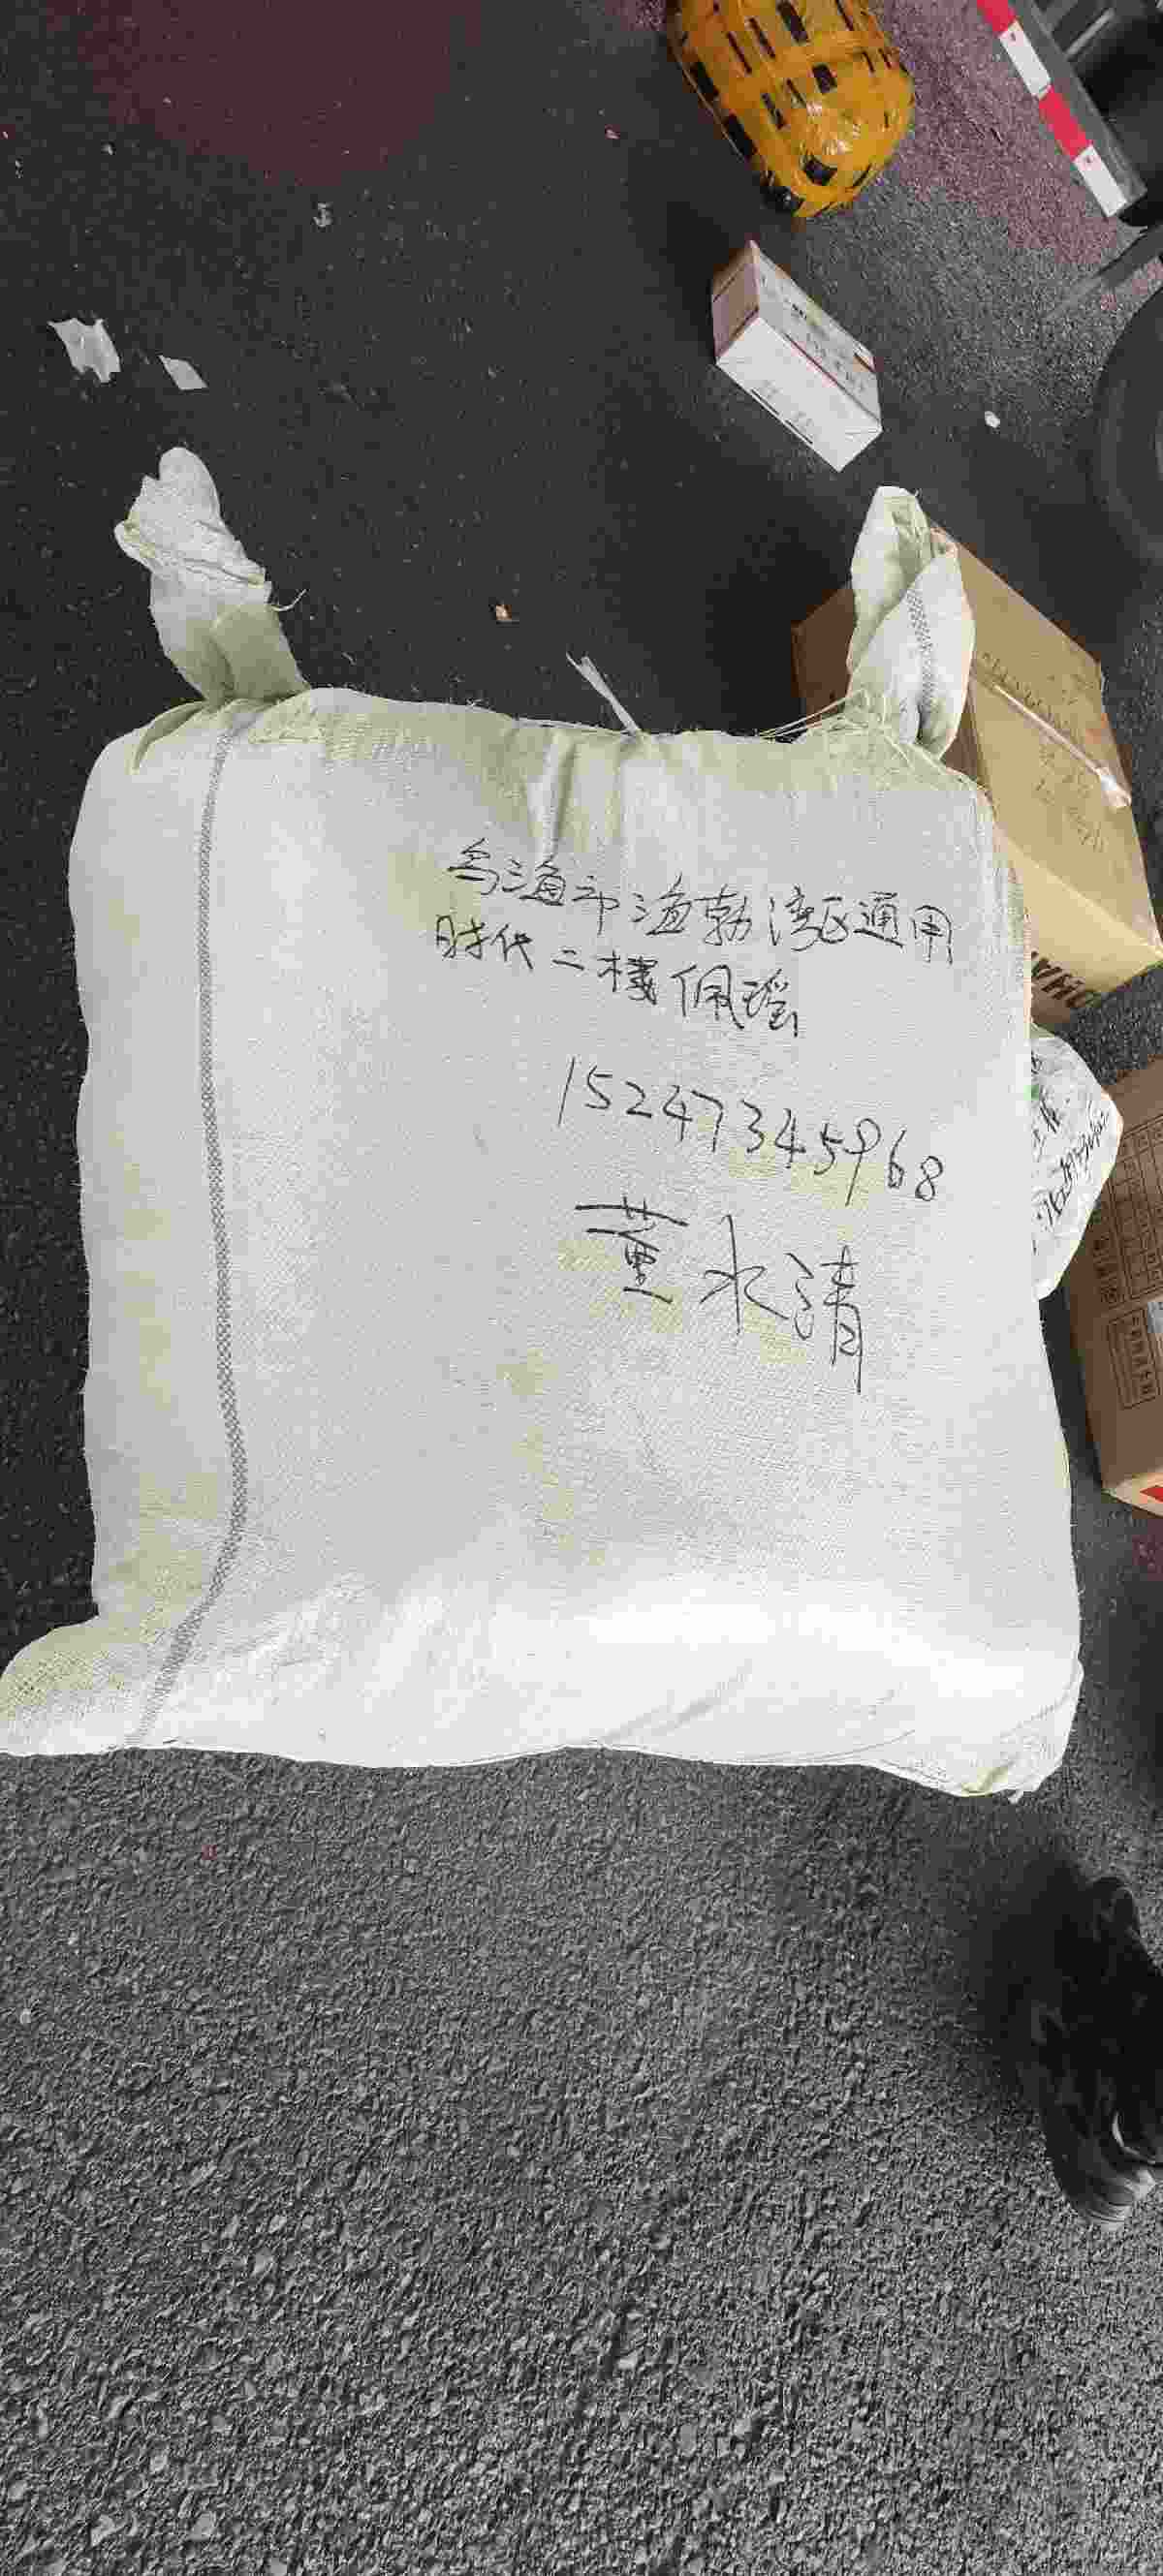 乌海市海勃湾区通用
时代二楼佩瑶
15247345968
董水清